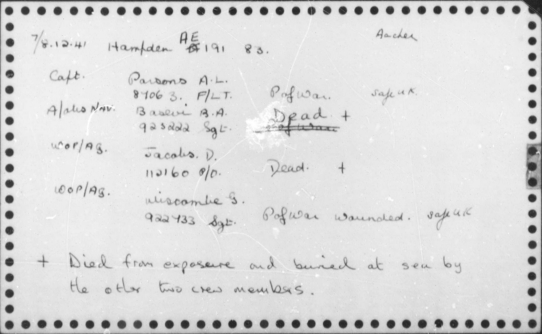 7/8.12.41 Hampden AE 191 83. Aachen
Capt. Parsons A.L.
87063. F/LT. P of War safe UK.
A/obs NAV. B.A. Dead +
923222 Sgt. P of War
WOP/AG. Jacobs. D.
112160 P/O. Dead. +
WOP/AG. G.
922733 Sgt. P of War wounded. safe UK
+ Died from exposure and buried at sea by
the other two crew members.